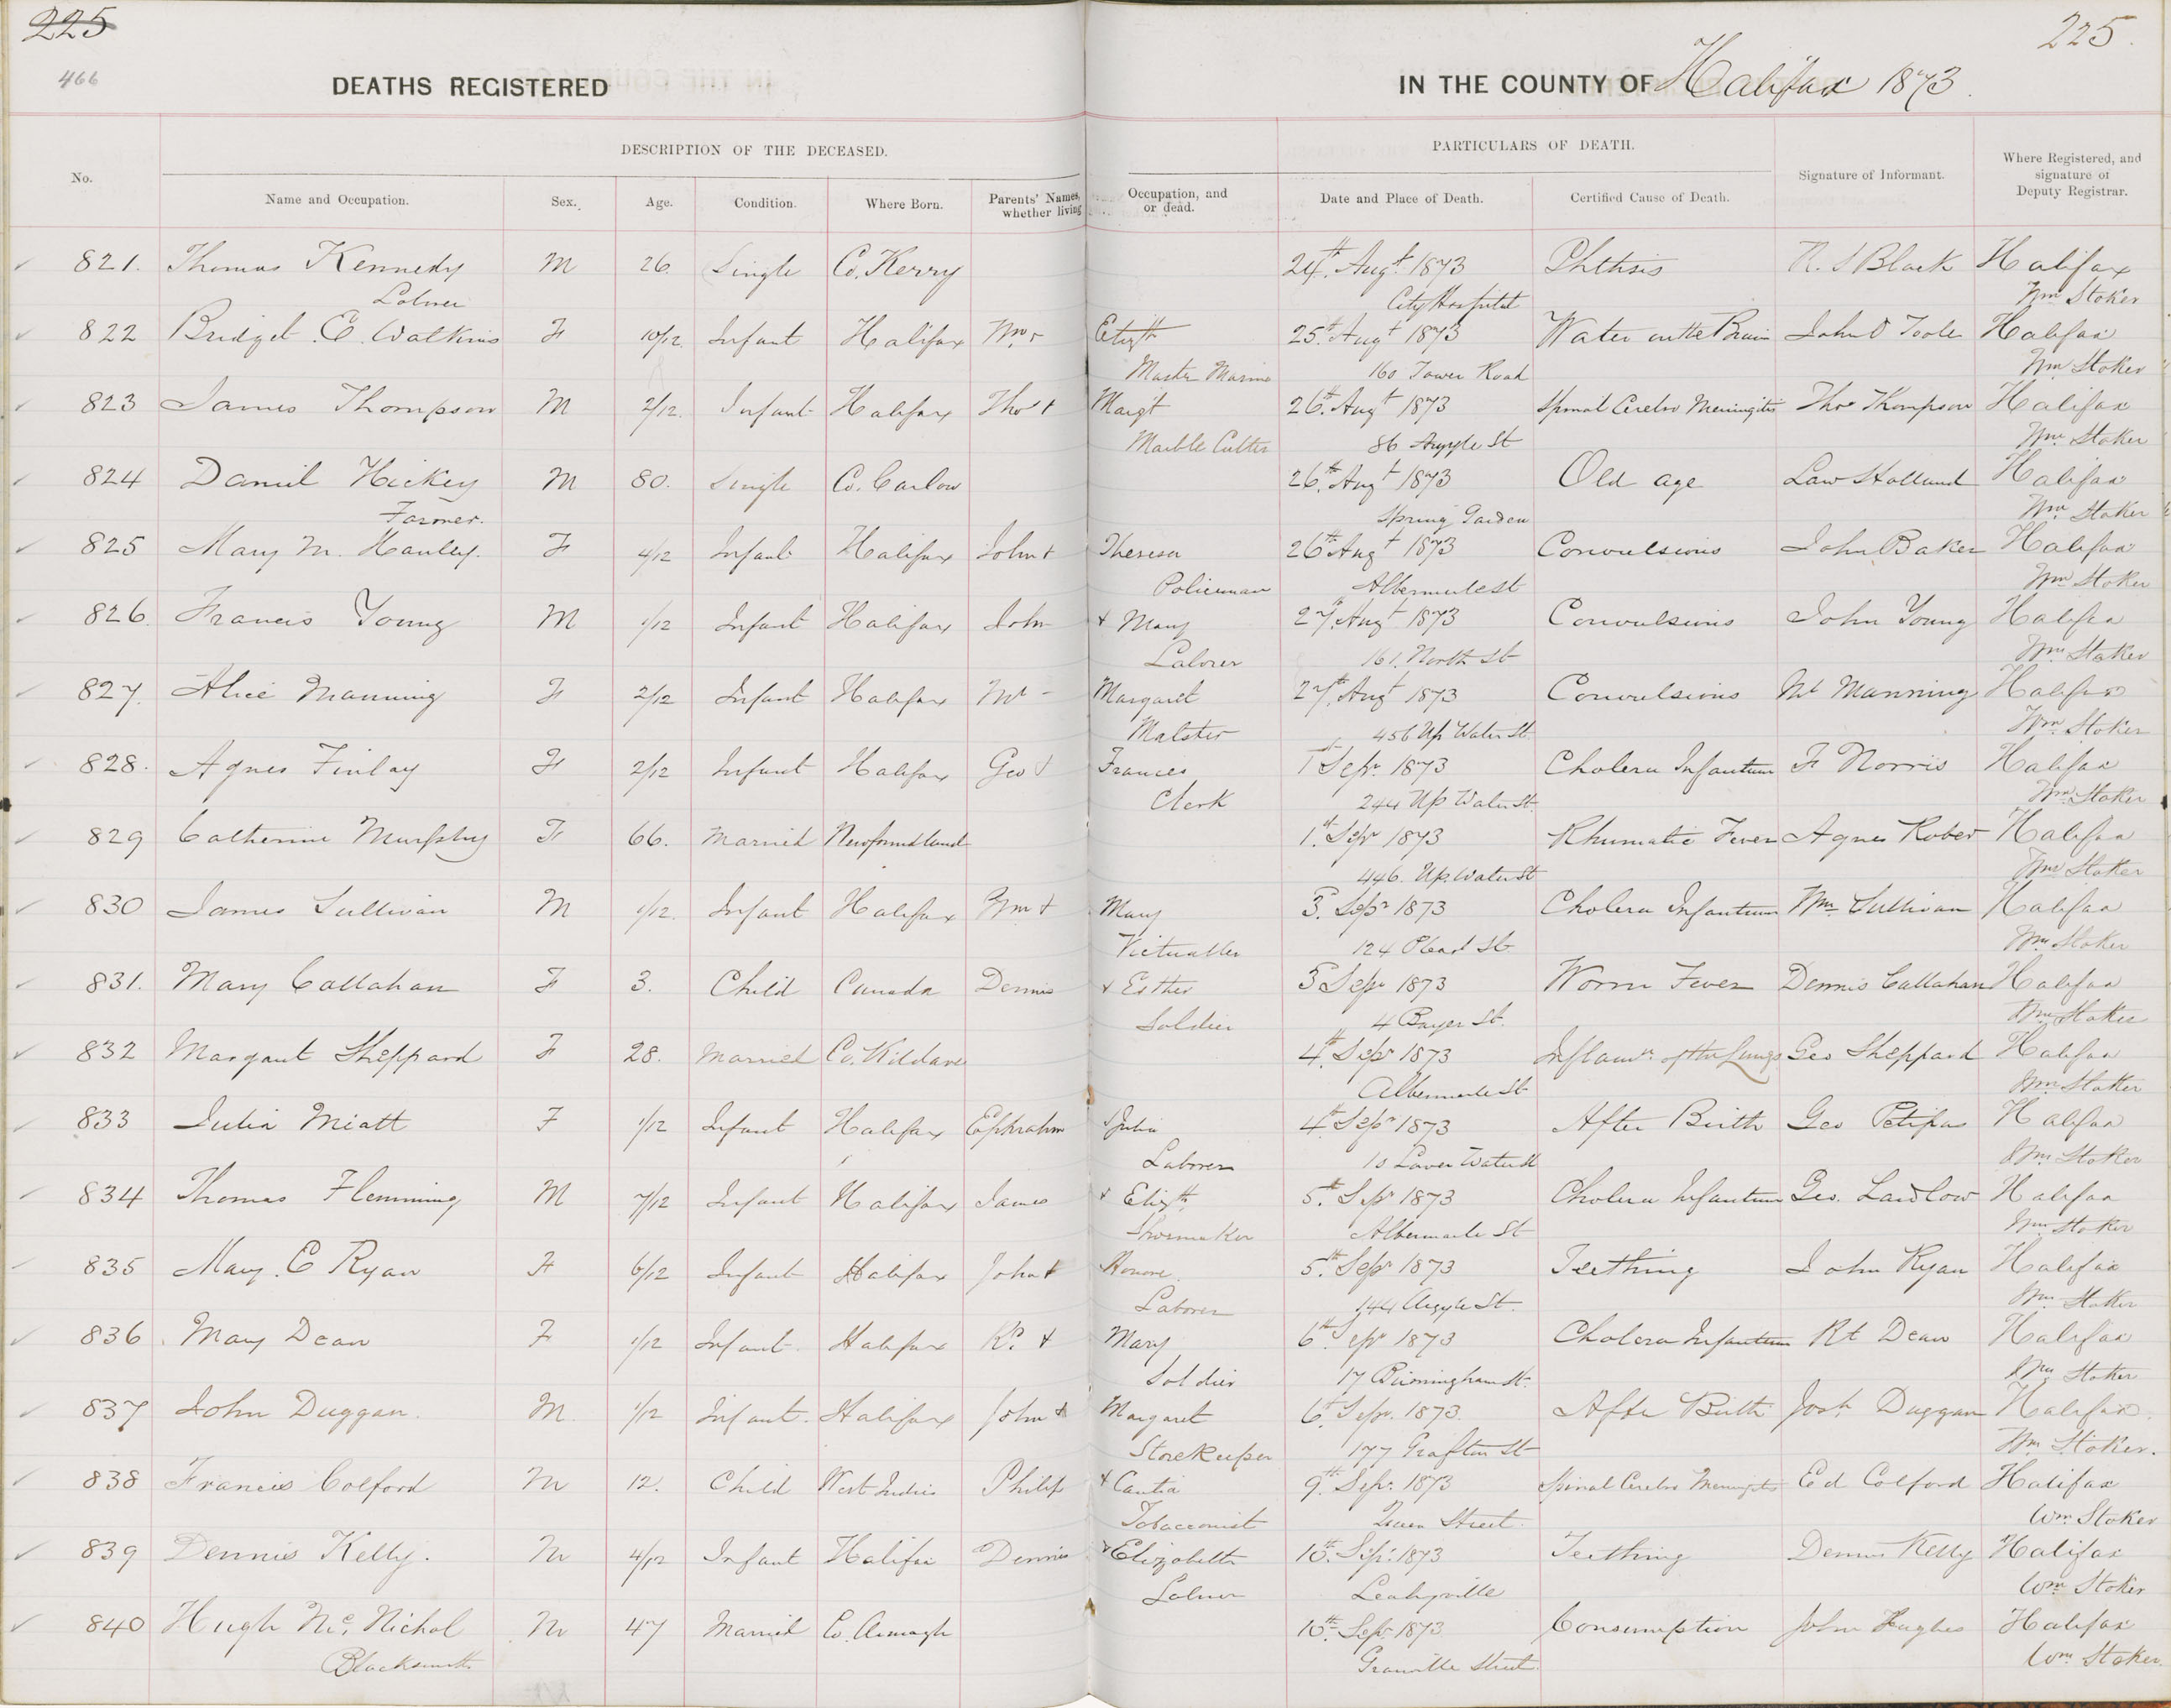 225
225.
466
DEATHS REGISTERED IN THE COUNTY OF Halifax 1873.
DESCRIPTION OF THE DECEASED.
PARTICULARS OF DEATH.
No.
Name and Occupation.
Sex.
Age.
Condition.
Where Born.
Parents' Names, Occupation, and
whether living or dead.
Date and Place of Death.
Certified Cause of Death.
Signature of Informant.
Where Registered, and
signature of
Deputy Registrar.
821. Thomas Kennedy M 26. Single Co. Kerry 24th. Augt. 1873 Phthsis R. S Black Halifax
Labrer City Hospital Wm Stoker
822 Bridget C. Watkins F 10/12 Infant Halifax Wm + Elizth 25th Augt 1873 Water on the Brain John O Toole Halifax
Master Marine 160 Tower Road Wm Stoker
823 James Thompson M 2/12. Infant Halifax Thos + Margt 26th. Augt 1873 Spinal Cerebro Meningitis Thos Thompson Halifax
Marble Cutter 86 Argyle St Wm Stoker
824 Daniel Hickey M 80. Single Co. Carlow 26th. Augt 1873 Old age Law Holland Halifax
Farmer. Spring Garden Wm Stoker
825 Mary M. Hanley. F 4/12 Infant Halifax John + Theresa 26th Augt 1873 Convulsions John Baker Halifax
Policeman Albermule st Wm Stoker
826. Francis Young M 1/12 Infant Halifax John + Mary 27th. Augt 1873 Convulsions John Young Halifax
Laborer 161. North St Wm Stoker
827. Alice Manning F 2/12 Infant Halifax Mt - Margaret 27th. Augt 1873 Convulsions Mt Manning Halifax
Malster 456 Up Water St. Wm Stoker
828. Agnes Finlay F 2/12 Infant Halifax Geo + Frances 1st Sepr. 1873 Cholera Infantum F Norris Halifax
Clerk 244 Up Water St. Wm Stoker
829 Catherine Murphy F 66. Married Newfoundland 1st. Sepr 1873 Rhumatic Fever Agnes Rober Halifax
446. Up. Water St Wm Stoker
830 James Sullivan M 1/12. Infant Halifax Wm + Mary 3. Sepr 1873 Cholera Infantum Wm Sullivan Halifax
Victualler 124 Pleast St Wm Stoker
831. Mary Callahan F 3. Child Canada Dennis + Esther 3 Sepr 1873 Worm Fever Dennis Callahan Halifax
Soldier 4 Bayer St. Wm Stoker
832 Margaut Sheppard F 28. Married Co. Kildare 4th. Sepr 1873 Inflamn of the Lungs Geo Sheppard Halifax
Albermarle St Wm Stoker
833 Julia Miatt F 1/12 Infant Halifax Ephrahm + Julia 4th Sepr 1873 After Birth Geo Petipas Halifax
Laborer 10 Lower Water St Wm Stoker
834 Thomas Flemming M 7/12 Infant Halifax James + Elizth. 5th. Sepr 1873 Cholera Infantum Geo. Laidlow Halifax
Shoemaker Albermarle St Wm Stoker
835 Mary. E Ryan F 6/12 Infant Halifax John + Honore. 5th. Sepr 1873 Teething John Ryan Halifax
Laborer 144 Argyle St. Wm Stoker
836 Mary Dean F 1/12 Infant. Halifax Rt. + Mary 6th Sepr 1873 Cholera Infantum Rt Dean Halifax
Soldier 17 Birmingham St. Wm Stoker
837 John Duggan. M. 1/12 Infant. Halifax John & Margaret 6th. Sepr. 1873. After Birth Josh Duggan Halifax.
Storekeeper 177 Grafton St Wm Stoker.
838 Francis Colford M 12. Child West Indies Philip + Cautia 9th. Sepr. 1873 Spinal Cerebro Meningitis Ed Colford Halifax
Tobacconist Queen Street. Wm Stoker
839 Dennis Kelly. M 4/12 Infant Halifax Dennis + Elizabeth 10th. Sepr. 1873 Teething Dennis Kelly Halifax
Labrer Leahyville Wm Stoker
840 Hugh Mc. Nichol M 47 Married Co. Armagh 10th. Sepr 1873 Consumption John Hughes Halifax
Blacksmith Granville Street. Wm Stoker.